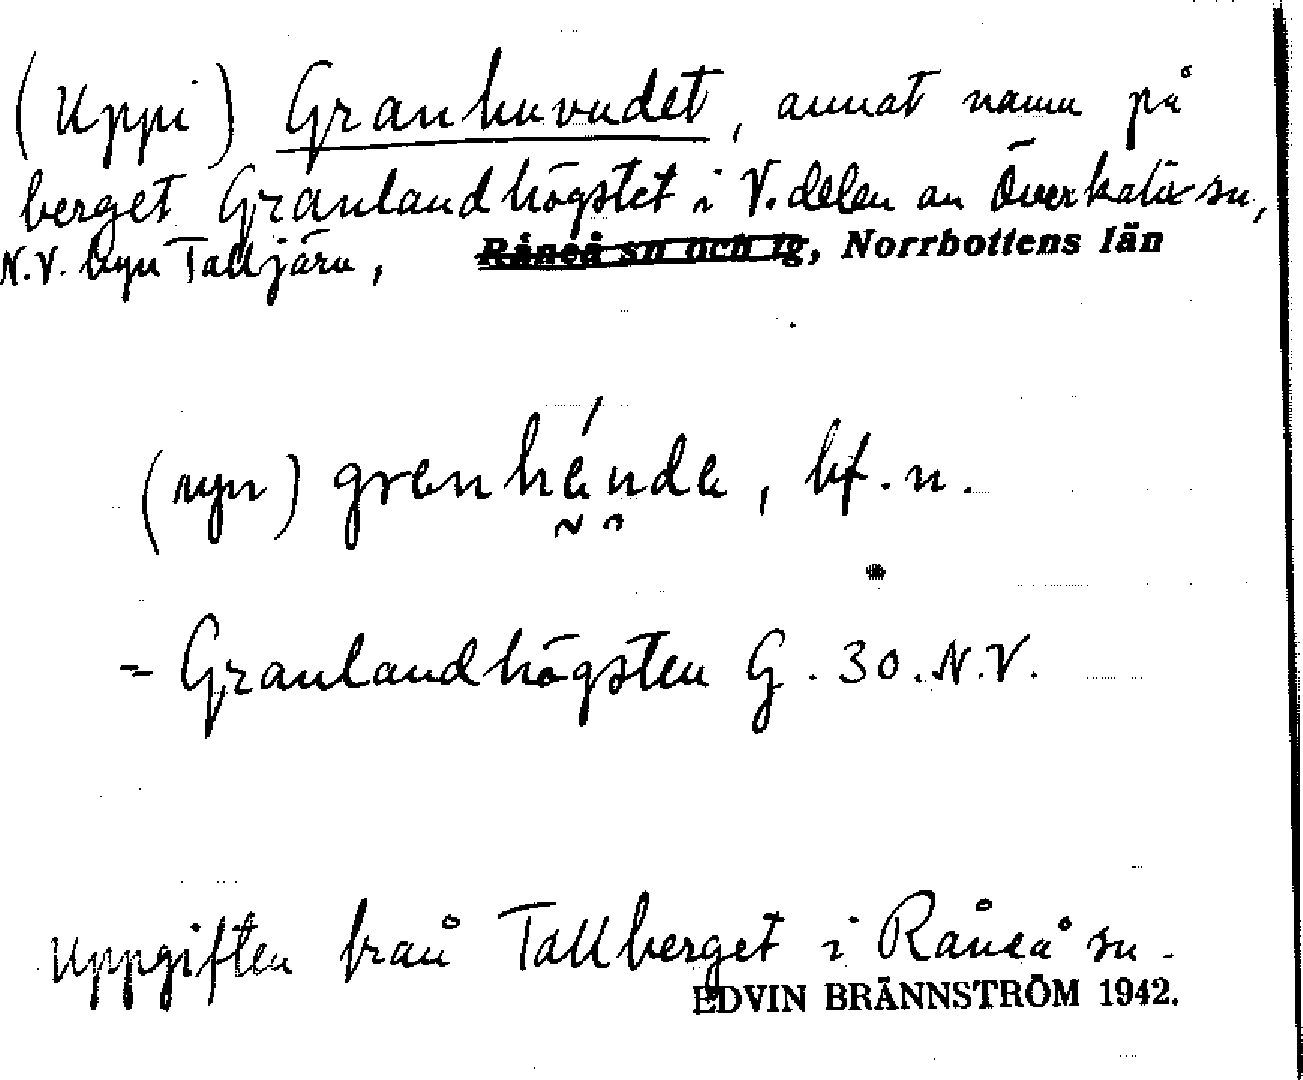 (Uppi) Granhuvudet, annat namn på
berget Granlandhögstet i V. delen av Överkalix sn,
N.V. byn Talljärv,
Råneå sn och tg, Norrbottens län
bf. n.
= Granlandhögsten G. 30. N.V.
Uppgiften från Tallberget i Råneå sn.
EDVIN BRÄNNSTRÖM 1942.